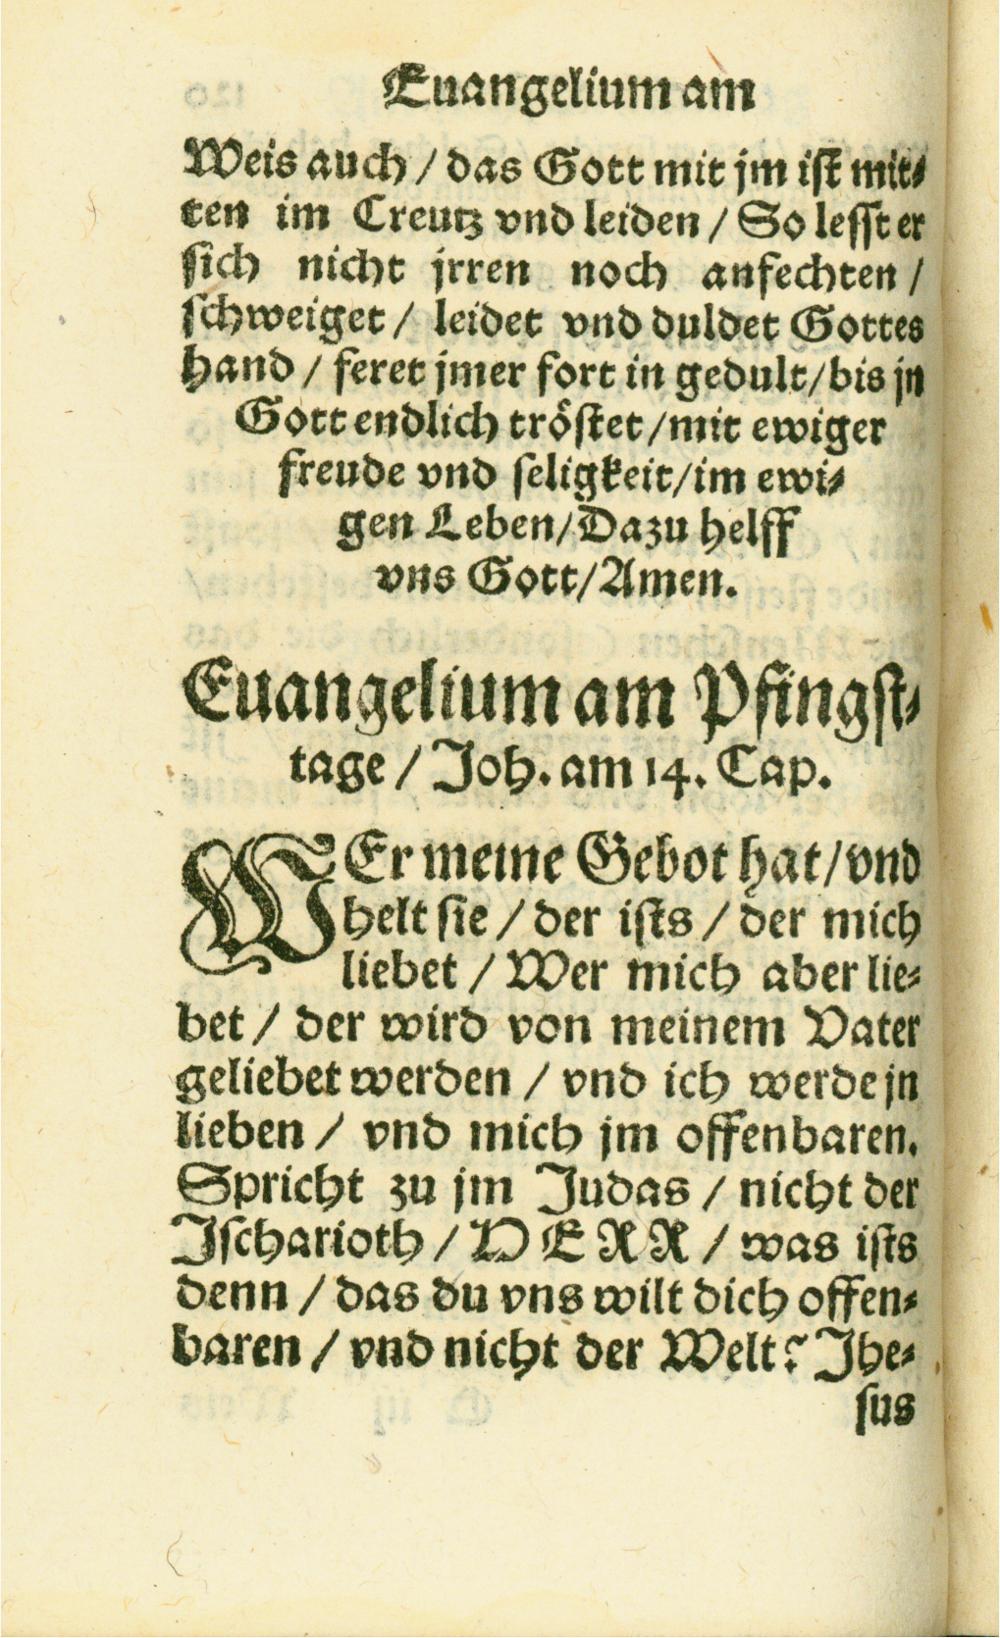 Euangelium am
Weis auch / das Gott mit jm ist mit⸗
ten im Creutz vnd leiden / So lesst er
sich nicht jrren noch anfechten /
schweiget / leidet vnd duldet Gottes
hand / feret jmer fort in gedult / bis jn
Gott endlich tröstet / mit ewiger
freude vnd seligkeit / im ewi⸗
gen Leben / Dazu helff
vns Gott / Amen.
Euangelium am Pfingst⸗
tage / Joh. am 14. Cap.
WEr meine Gebot hat / vnd
helt sie / der ists / der mich
liebet / Wer mich aber lie⸗
bet / der wird von meinem Vater
geliebet werden / vnd ich werde jn
lieben / vnd mich jm offenbaren.
Spricht zu jm Judas / nicht der
Ischarioth / HERR / was ists
denn / das du vns wilt dich offen⸗
baren / vnd nicht der Welt? Jhe⸗
sus